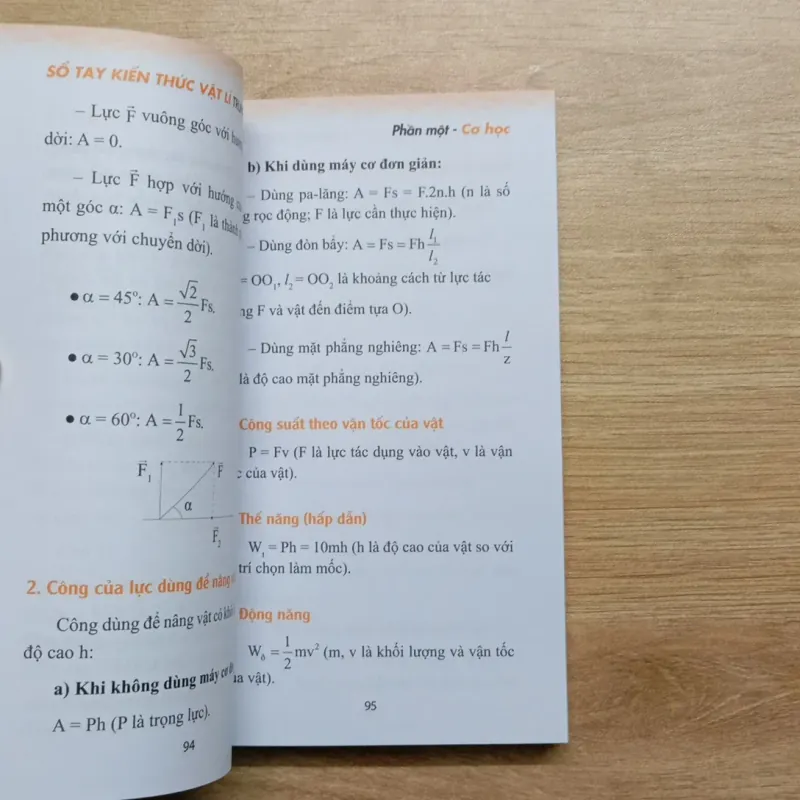 SỔ TAY KIẾN THỨC VẬT LÍ
– Lực F⃗ vuông góc với
dời: A = 0.
– Lực F⃗ hợp với hướng
một góc α: A = F₁s (F₁ là thành
phương với chuyển dời).
● α = 45º: A = √2/2 Fs.
● α = 30º: A = √3/2 Fs.
● α = 60º: A = 1/2 Fs.
F⃗₁
F⃗
α
F⃗₂
2. Công của lực dùng để nâng
Công dùng để nâng vật có
độ cao h:
a) Khi không dùng máy cơ
A = Ph (P là trọng lực).
94
Phần một - Cơ học
b) Khi dùng máy cơ đơn giản:
– Dùng pa-lăng: A = Fs = F.2n.h (n là số
rọc động; F là lực cần thực hiện).
– Dùng đòn bẩy: A = Fs = Fh l₁/l₂
= OO₁, l₂ = OO₂ là khoảng cách từ lực tác
F và vật đến điểm tựa O).
– Dùng mặt phẳng nghiêng: A = Fs = Fh l/z
là độ cao mặt phẳng nghiêng).
Công suất theo vận tốc của vật
P = Fv (F là lực tác dụng vào vật, v là vận
của vật).
Thế năng (hấp dẫn)
Wₜ = Ph = 10mh (h là độ cao của vật so với
trí chọn làm mốc).
Động năng
Wđ = 1/2 mv² (m, v là khối lượng và vận tốc
vật).
95